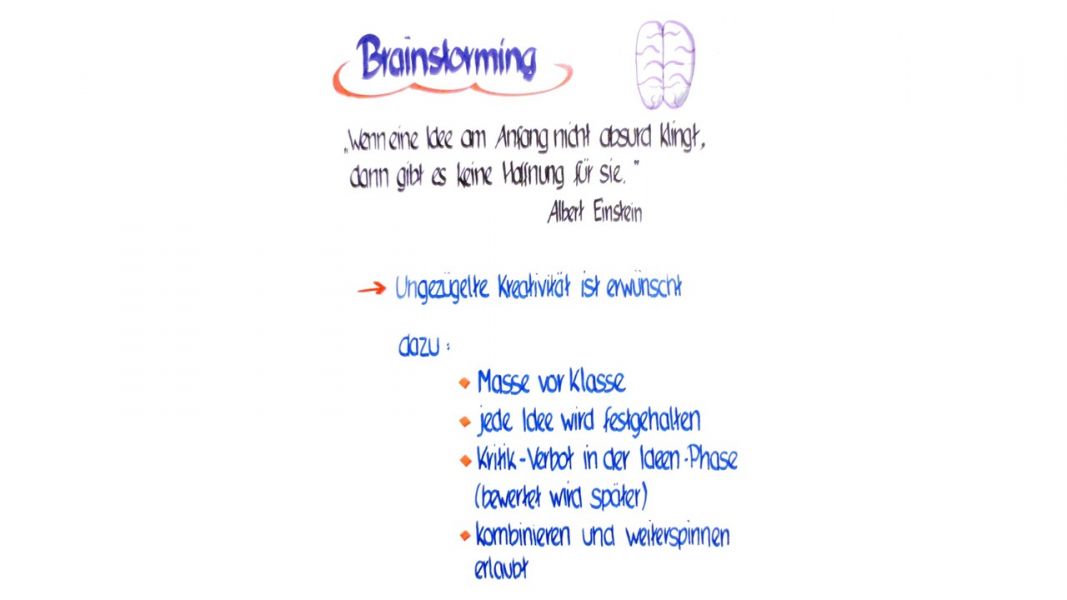 Brainstorming
„Wenn eine Idee am Anfang nicht absurd klingt,
dann gibt es keine Hoffnung für sie."
Albert Einstein
→ Ungezügelte Kreativität ist erwünscht
dazu:
• Masse vor Klasse
• jede Idee wird festgehalten
• Kritik-Verbot in der Ideen-Phase
(bewertet wird später)
• kombinieren und weiterspinnen
erlaubt